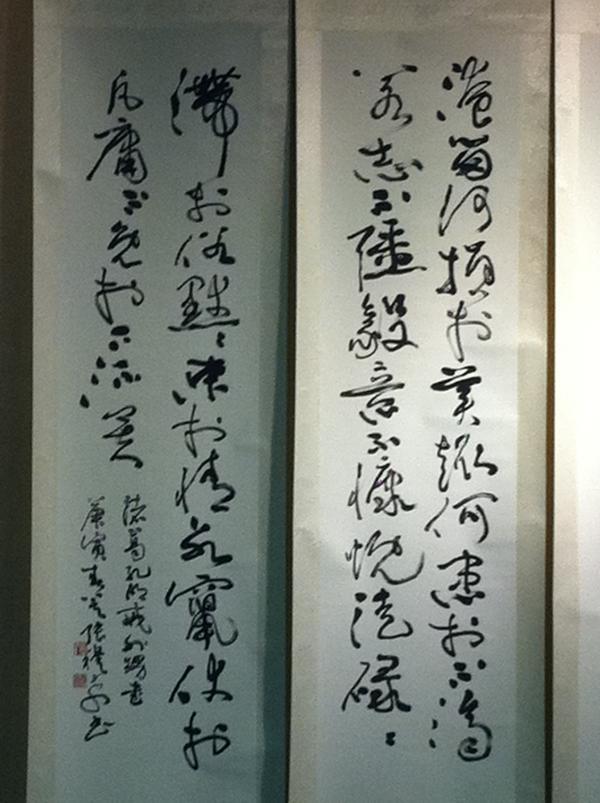 淹留何損於美趣何患於不濟
若志不彊毅意不慷慨徒碌〻
滯於俗默〻束於情永竄伏於
凡庸不免於下流矣
諸葛孔明戒外甥書
庚寅春 張 書